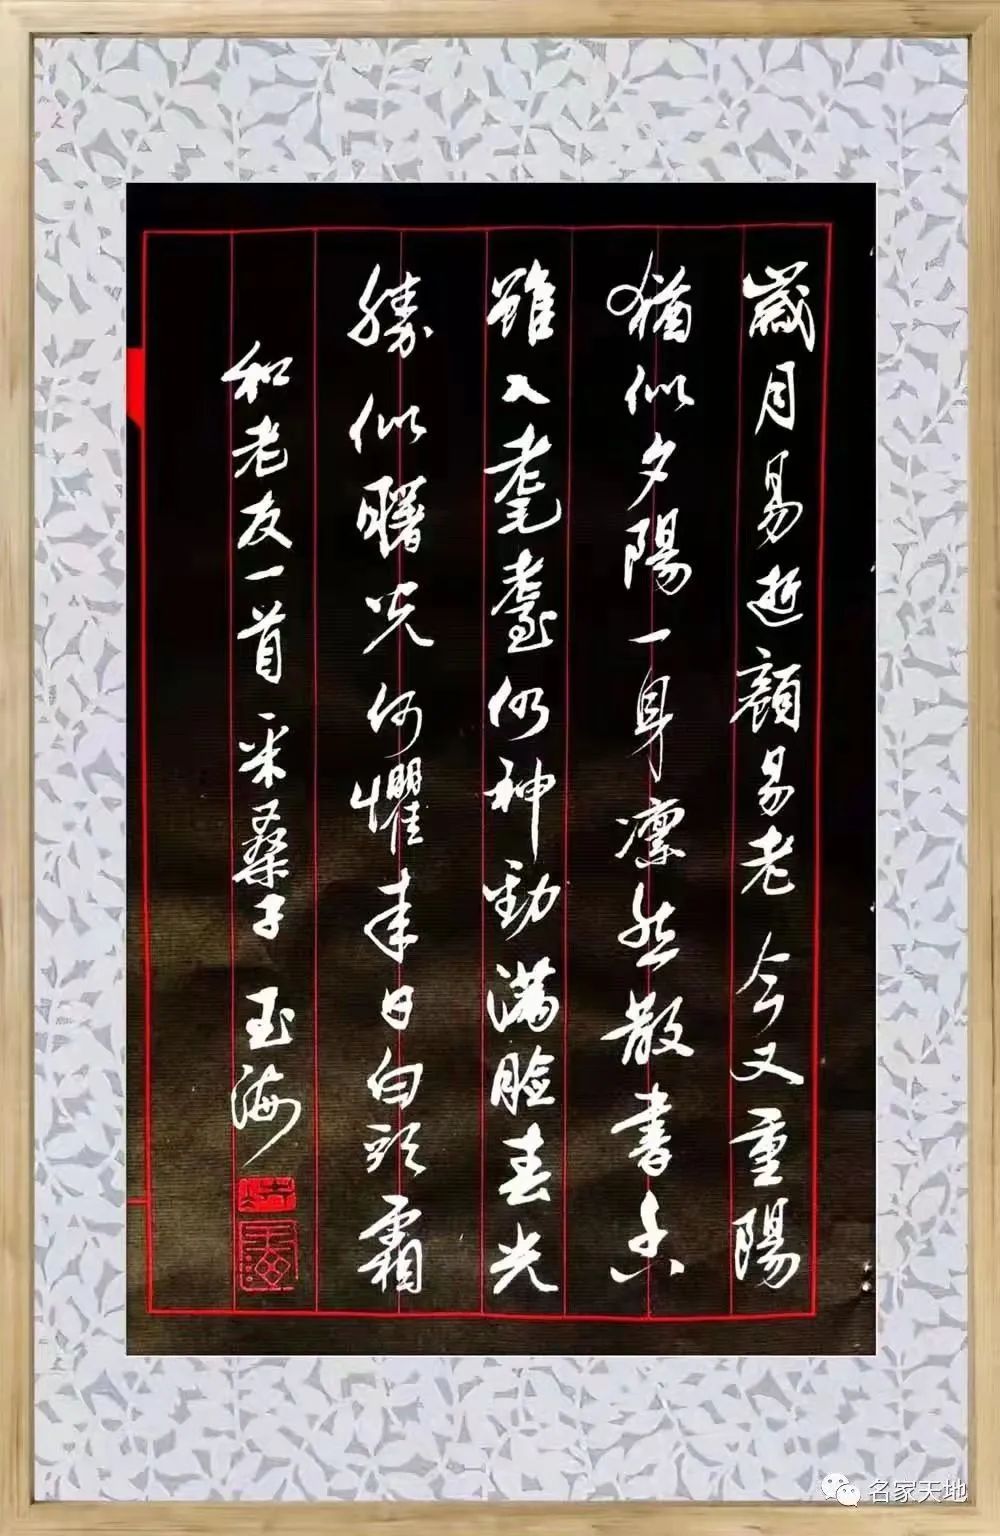 歲月易逝顔易老今又重陽
猶似夕陽一身凛然散書香
雖入耄耋仍神勁滿臉春光
勝似曙光何懼來日白頭霜
和老友一首采桑子玉海
名家天地